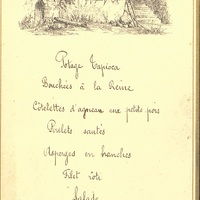 Potage Tapioca
Bouchées à la Reine
Côtelettes d'agneau aux petits pois
Poulets sautés
Asperges en branches
Filet rôti
Salade